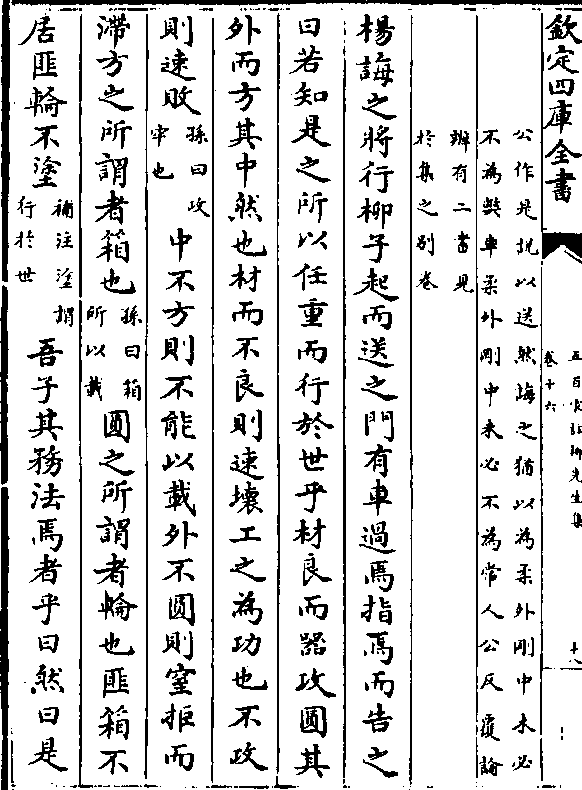 欽定四庫全書
五百家注柳先生集
卷十六
十八
公作是說以送然誨之猶以為柔外剛中未必
不為弊車柔外剛中未必不為常人公反覆論
辨有二書見
於集之別卷
楊誨之將行柳子起而送之門有車過焉指焉而告之
曰若知是之所以任重而行於世乎材良而器攻圓其
外而方其中然也材而不良則速壞工之為功也不攻
則速敗孫曰攻牢也中不方則不能以載外不圓則窒拒而
滯方之所謂者箱也孫曰箱所以載圓之所謂者輪也匪箱不
居匪輪不塗補注塗謂行於世吾子其務法焉者乎曰然曰是